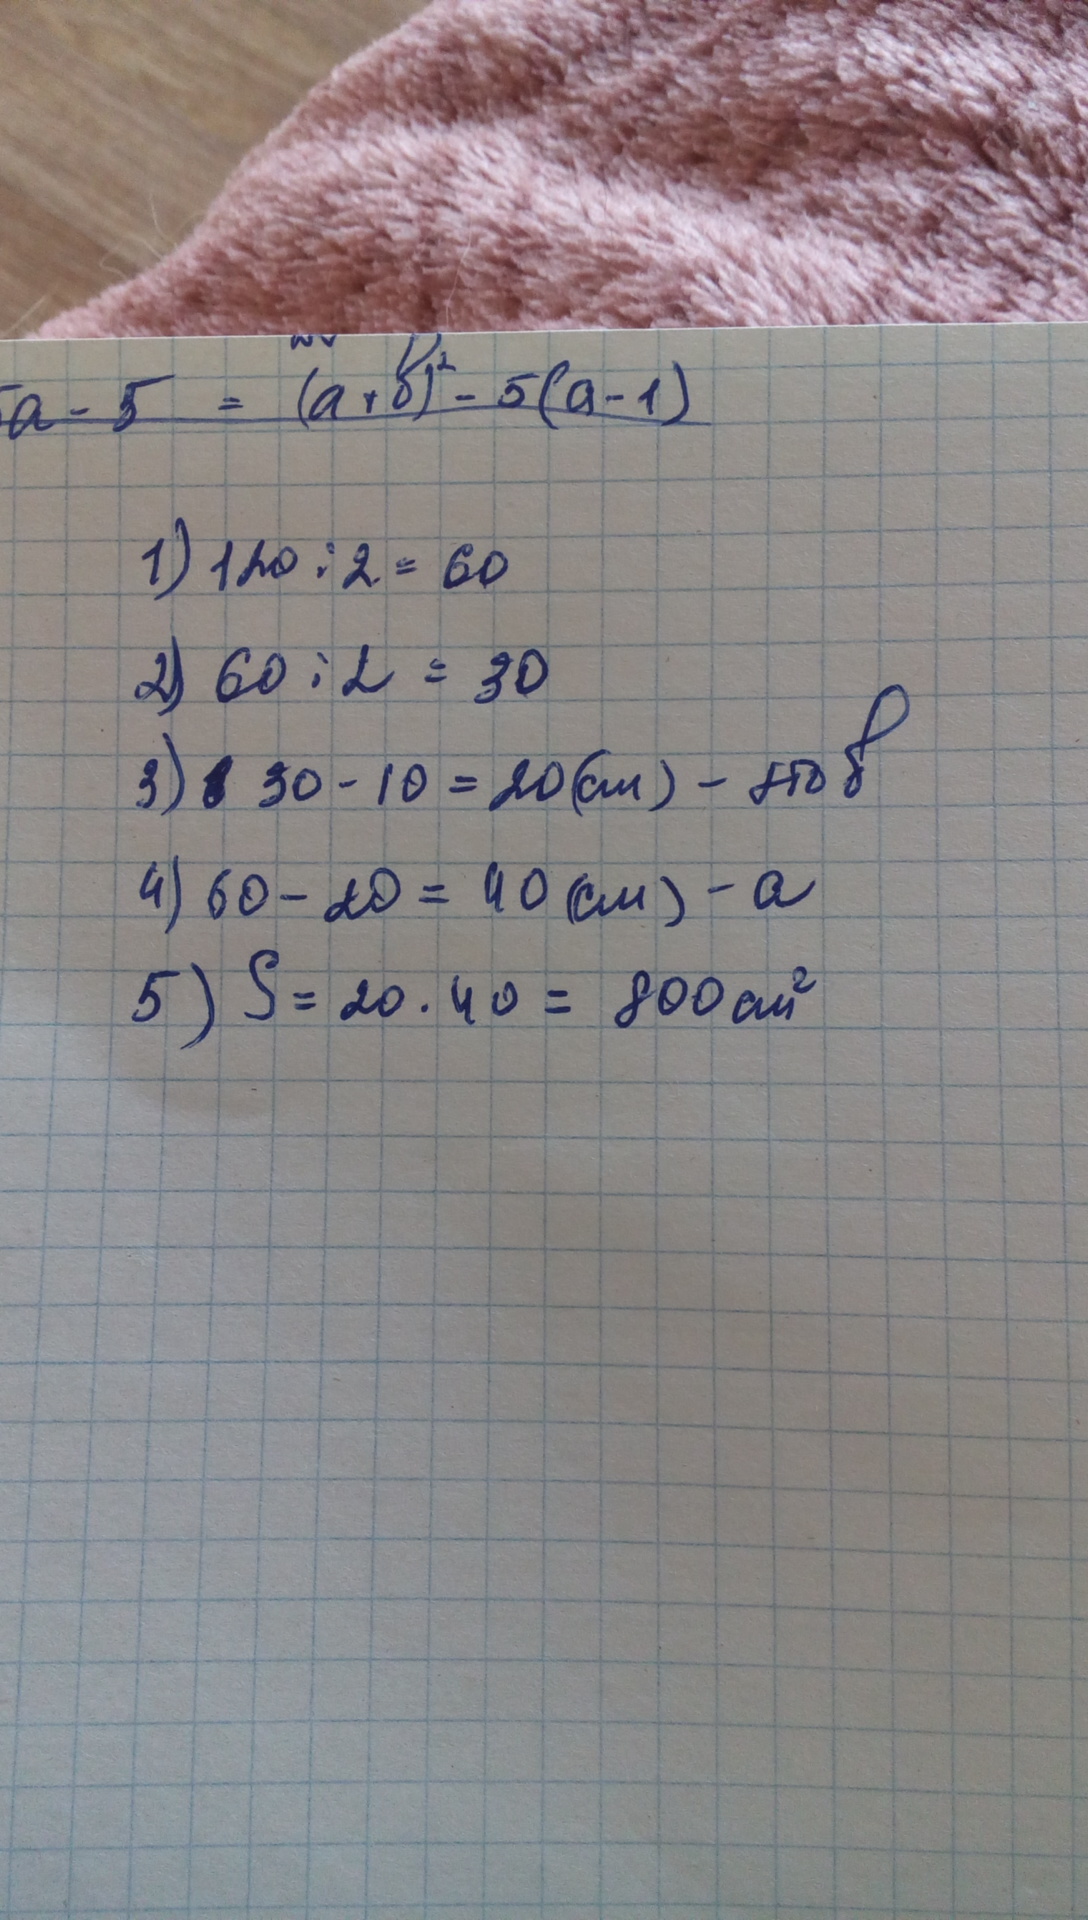 5a - 5 = (a + b)² - 5(a - 1)
1) 120 : 2 = 60
2) 60 : 2 = 30
3) 30 - 10 = 20 (см) - это b
4) 60 - 20 = 40 (см) - a
5) S = 20 · 40 = 800 см²